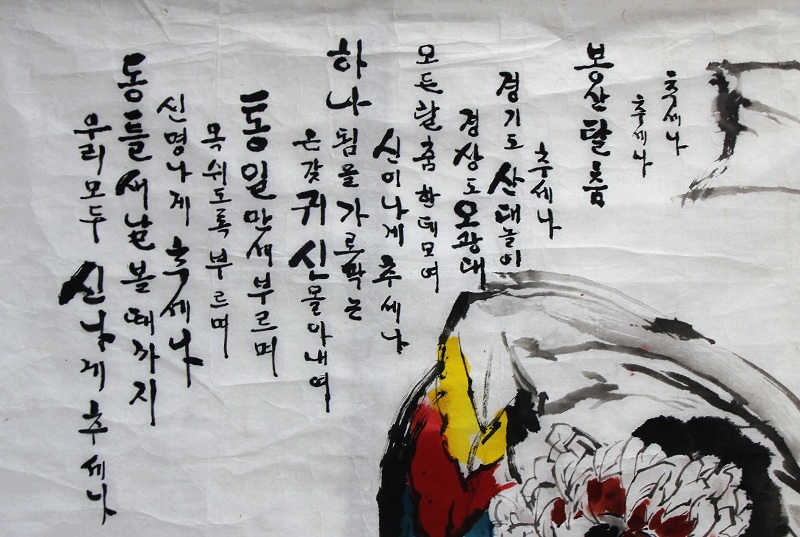 추세나
추세나
봉산탈춤
추세나
경기도 산대놀이
경상도 오광대
모든 탈춤 한데 모여
신이나게 추세나
하나됨을 가로막는
온갖 귀신 몰아내여
통일만세 부르며
목쉬도록 부르며
신명나게 추세나
동틀 새날 볼 때까지
우리 모두 신나게 추세나